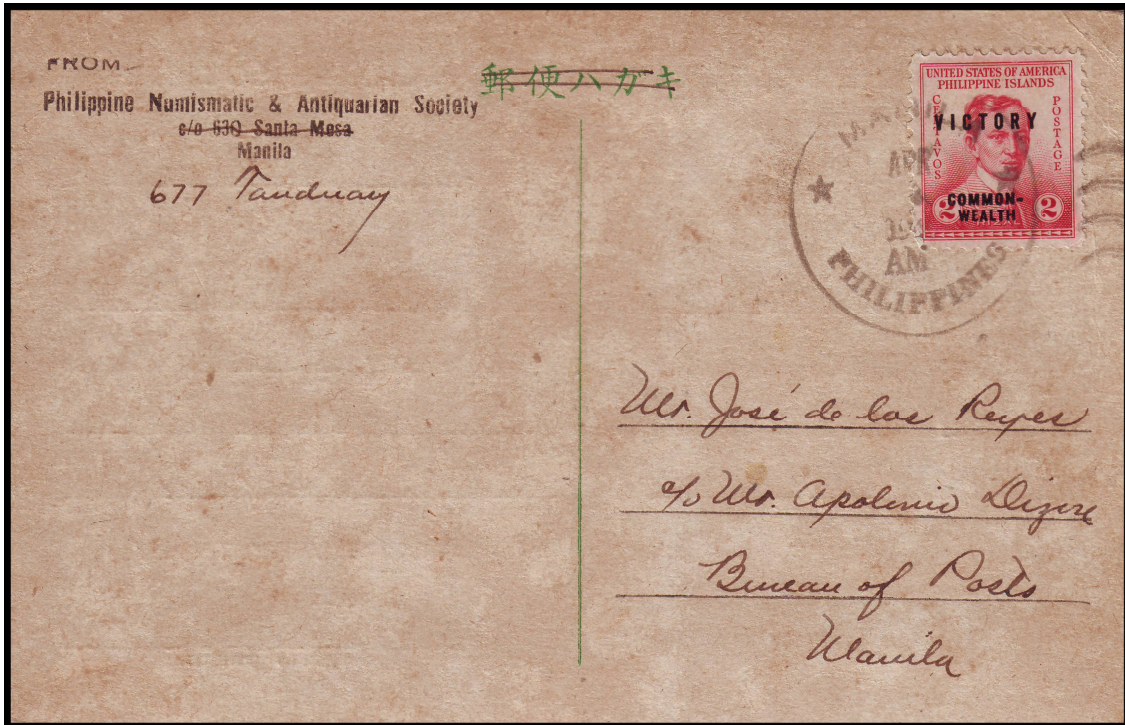 FROM
Philippine Numismatic & Antiquarian Society
c/o 630 Santa Mesa
Manila
677 Tanduay
郵便ハガキ
UNITED STATES OF AMERICA
PHILIPPINE ISLANDS
CENTAVOS
POSTAGE
VICTORY
COMMON-
WEALTH
2 2
APR
AM
PHILIPPINES
Mr. José de los Reyes
c/o Mr. Apolonio Dizon
Bureau of Posts
Manila